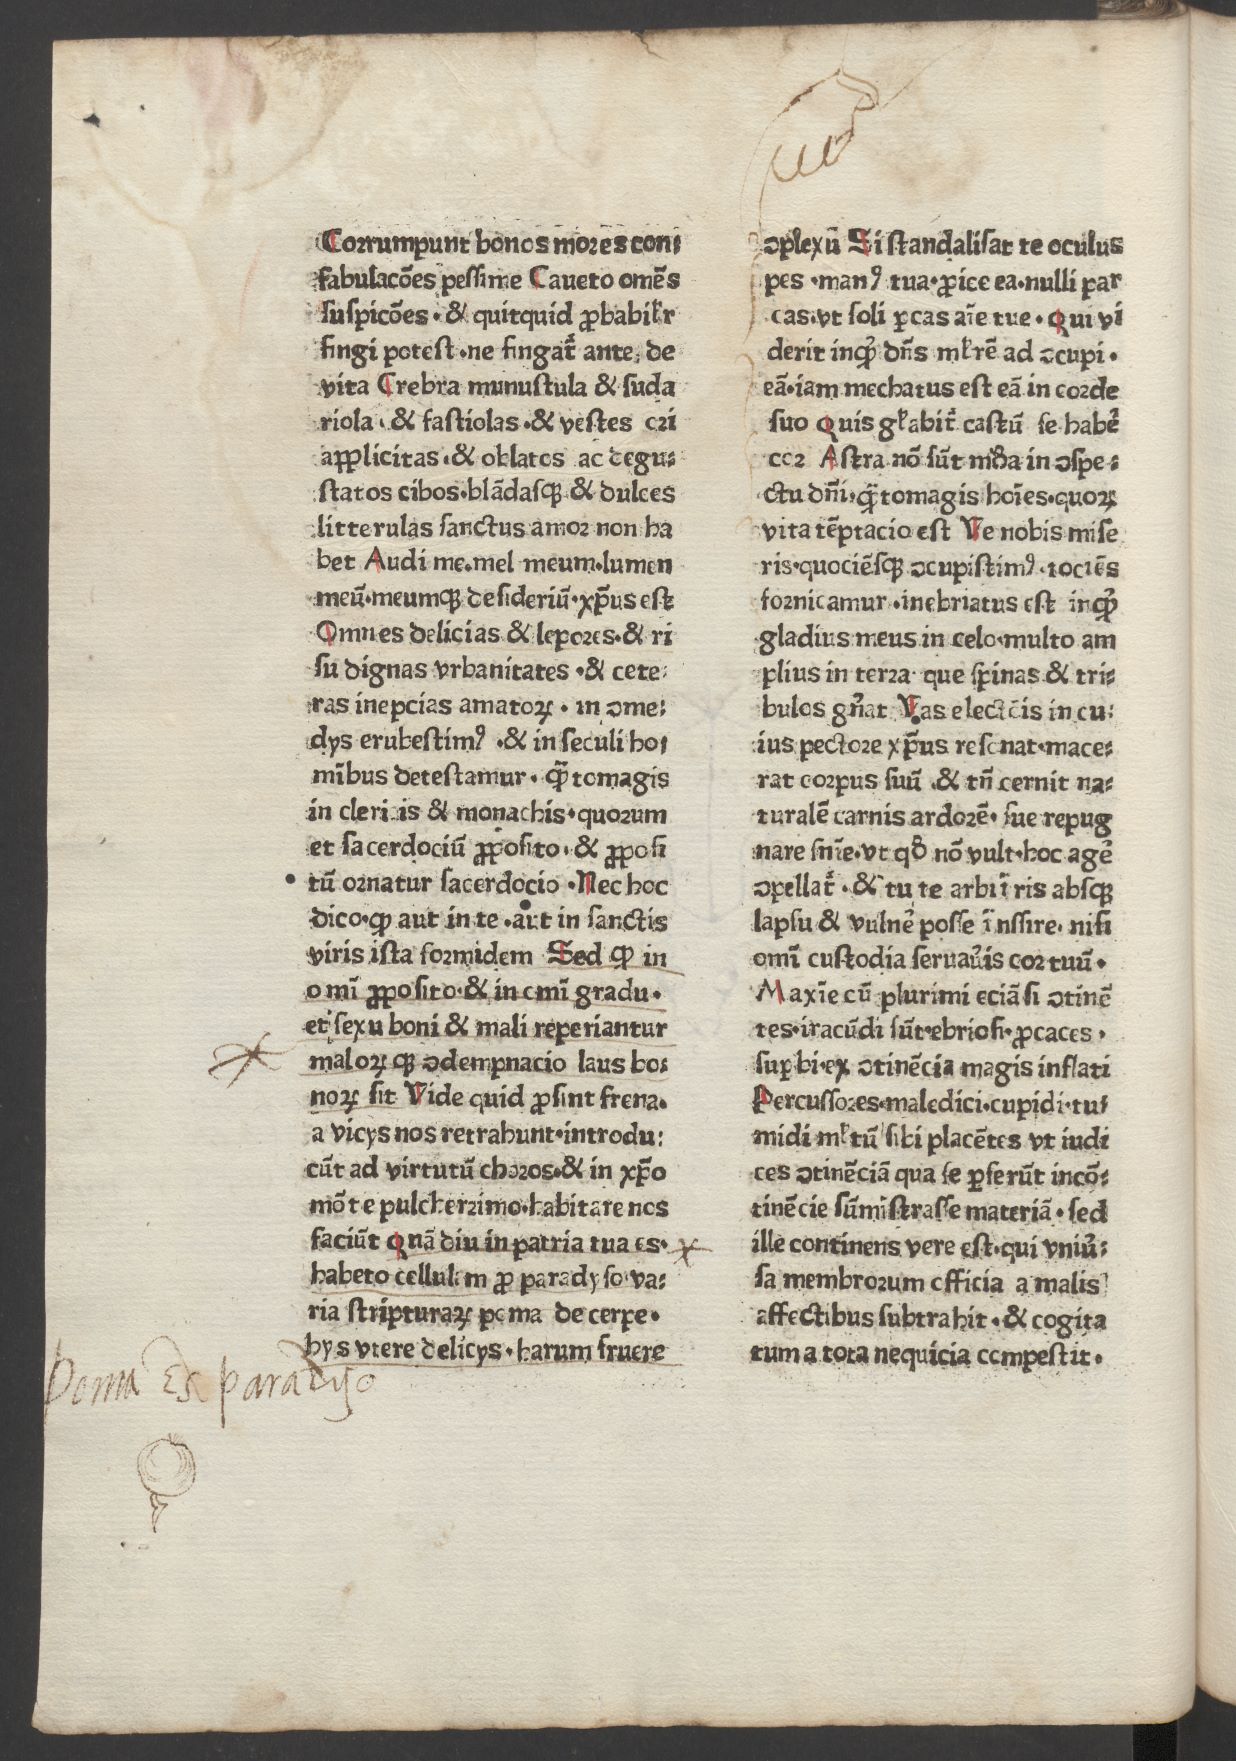 Corrumpunt bonos mores con⸗
fabulacões pessime Caueto omẽs
suspicões · & quitquid ꝓbabilr̃
fingi potest · ne fingat᷑ ante · de
vita Crebra munustula & suda
riola · & fastiolas · & vestes ori
applicitas · & oblatos ac degu⸗
statos cibos · blãdasqꝫ & dulces
litterulas sanctus amor non ha
bet Audi me · mel meum · lumen
meũ · meumqꝫ desideriũ · xp̃us est
Omnes delicias & lepores · & ri
su dignas vrbanitates · & cete⸗
ras inepcias amatorꝝ · in ↄme⸗
dys erubestimꝰ · & in seculi ho⸗
mĩbus detestamur · qꝫ̃tomagis
in clericis & monachis · quorum
et sacerdociũ ꝓposito · & ꝓposi
tũ ornatur sacerdocio · Nec hoc
dico · ꝙ aut in te · aut in sanctis
viris ista formidem Sed ꝙ in
omĩ ꝓposito · & in omĩ gradu ·
et sexu boni & mali reperiantur
malorꝝ qꝫ ↄdempnacio laus bo⸗
norꝝ sit Vide quid ꝓsint frena ·
a vicys nos retrahunt · introdu⸗
cũt ad virtutũ choros · & in xp̃o
mõte pulcherrimo · habitare nos
faciũt Quãdiu in patria tua es ·
habeto cellulam ꝓ paradyso · va⸗
ria stripturarꝝ poma decerpe ·
hys vtere delicys · harum fruere
Poma Ex paradyso
ↄplexũ Si standalisat te oculus
pes · manꝰ tua · ꝓice ea · nulli par
cas · vt soli ꝑcas aĩe tue · Qui vi
derit inqꝫ̃ dñs mlr̃ẽ ad ↄcupi ·
eã · iam mechatus est eã in corde
suo Quis glabit᷑ castũ se habẽ
cor Astra nõ sũt mũda in ↄspe⸗
ctu dñi · qꝫ̃tomagis hoĩes · quorꝝ
vita tẽptacio est Ve nobis mise
ris · quociẽsqꝫ ↄcupistimꝰ · tociẽs
fornicamur · inebriatus est inqꝫ̃
gladius meus in celo · multo am
plius in terra · que spinas & tri⸗
bulos gñat Vas electõis in cu⸗
ius pectore xp̃us resonat · mace⸗
rat corpus suũ · & tñ cernit na⸗
turalẽ carnis ardorẽ · sue repug
nare snĩe · vt qđ nõ vult · hoc agẽ
ↄpellat᷑ · & tu te arbit̃ris absqꝫ
lapsu & vulnẽ posse t̃nssire · nisi
omĩ custodia seruaũis cor tuũ ·
Maxĩe cũ plurimi eciã si ↄtinẽ
tes · iracũdi sũt · ebriosi · ꝓcaces ·
suꝑbi · ex ↄtinẽcia magis inflati
Percussores · maledici · cupidi · tu⸗
midi ml̃tũ sibi placẽtes vt iudi
ces ↄtinẽciã qua se ꝓferũt incõ⸗
tinẽcie sũmĩstrasse materiã · sed
ille continens vere est · qui vniũ⸗
sa membrorum officia a malis
affectibus subtrahit · & cogita
tum a tota nequicia compestit ·